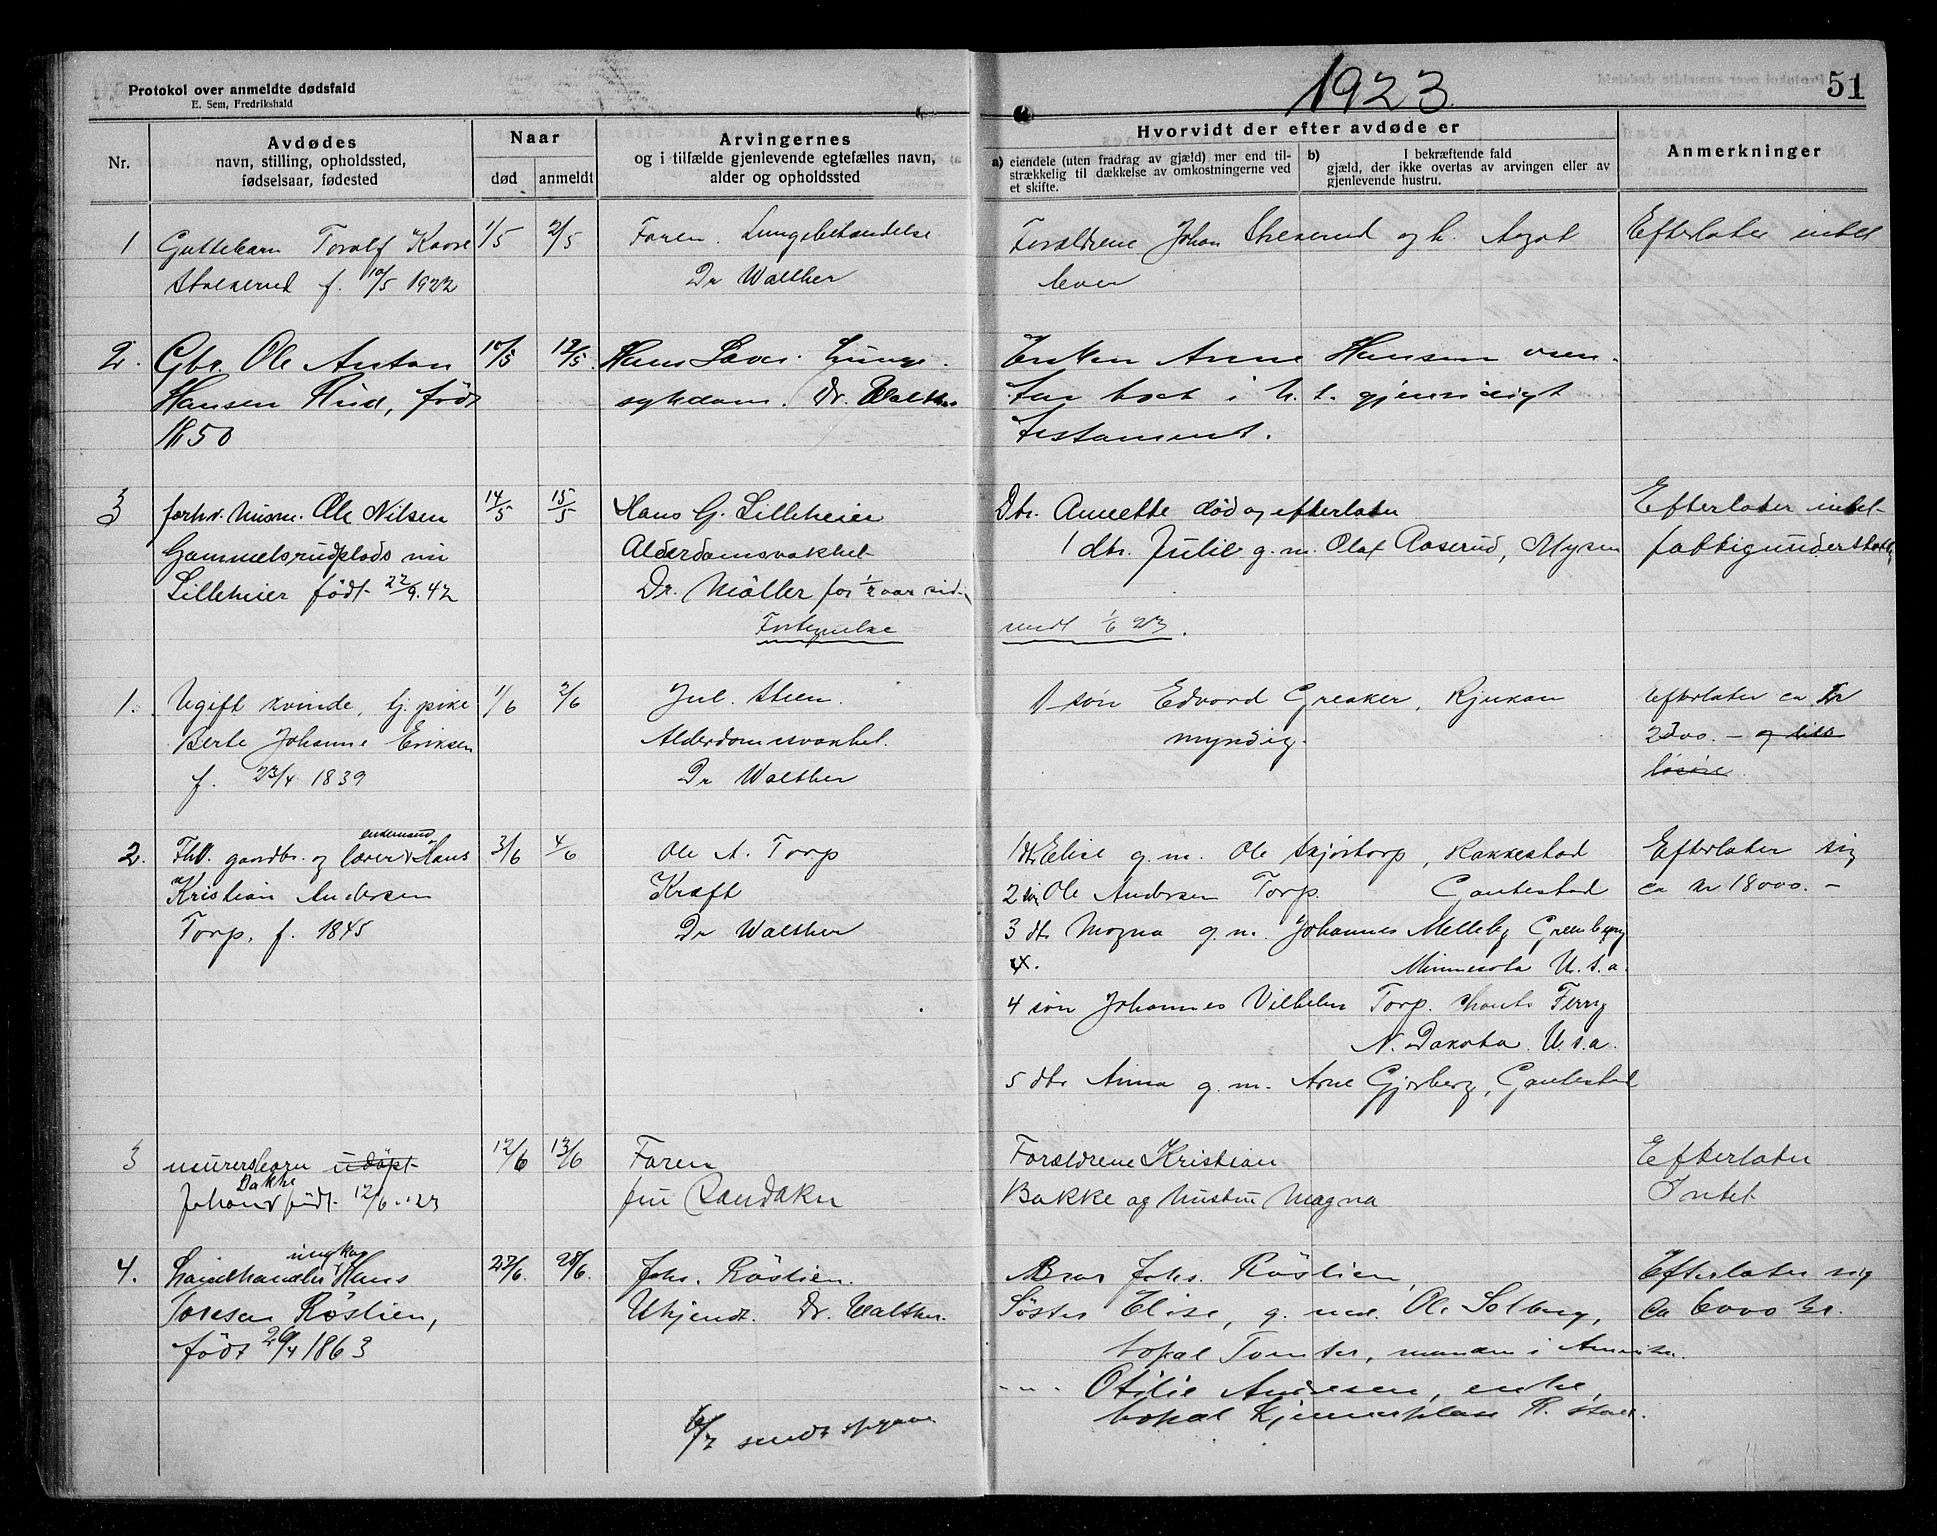 Protokol over anmeldte dødsfald
E. Sem, Fredrikshald
1923
51
Nr.
Avdødes
navn, stilling, opholdssted,
fødselsaar, fødested
Naar
død
anmeldt
Arvingernes
og i tilfælde gjenlevende egtefælles navn,
alder og opholdssted
Hvorvidt der efter avdøde er
a) eiendele (uten fradrag av gjæld) mer end til-
strækkelig til dækkelse av omkostningerne ved
et skifte.
b) I bekræftende fald
gjæld, der ikke overtas av arvingen eller av
gjenlevende hustru.
Anmerkninger
1 Guttebarn Toralf Kaare 1/5 2/5 Faren. Lungebetændelse Forældrene Johan og h. Agot Efterlater intet
f. 10/5 1922 Dr Walther lever
2. Gbr. Ole Anton 10/5 12/5 Hans Laver. Lunge- Enken Anne Hansen
Hansen Rud, født sykdom. Dr. Walther boet i h. t. gjensidigt
1850 testament.
3 forhv. husm. Ole Nilsen 14/5 15/5 Hans G. Lilleheier Dtr. Annette død og efterlater Efterlater intet
Gammelsrudplads nu Alderdomsvakhet 1 dtr. Julie g. m. Olaf Aaserud, Mysen fattigunderstøttet
Lilleheier født 22/9. 42 Dr. Möller for 1/2 aar sid.
Fortegnelse sendt 1/6 23.
1. Ugift kvinde, tj. pike 1/6 2/6 Jul. Steen. 1 søn Edvard Greaker, Rjukan Efterlater ca kr
Berte Johanne Eriksen Alderdomsvakhet. myndig. 2700. – og litt
f. 23/4 1839 Dr Walther løsøre.
enkemand
2. Fhv. gaardbr. og lærer Hans 3/6 4/6 Ole A. Torp 1 dtr Elise g. m. Ole Skjørtorp, Rakkestad Efterlater sig
Kristian Andersen Kræft 2 søn Ole Andersen Torp. Gautestad ca kr 18000. –
Torp, f. 1845 Dr Walther 3 dtr Magna g. m. Johannes Melleby
4. Minnesota U.S.a.
4 søn Johannes Vilhelm Torp. Ferry
N. Dakota U.S.a.
5 dtr Anna g. m. Arne Gjersberg, Gautestad
3 murersbarn udöpt 12/6 13/6 Faren Forældrene Kristian Efterlater
Bakke
Johan født 12/6. 23 Bakke og hustru Magna Intet
ungkar
4. Landhandler Hans 27/6. 28/6. Johs. Röstien. Bror Johs. Röstien, Efterlater sig
Toresen Röstien, Ukjendt. Dr. Walther. Söster Elise, g. med Ole Solberg, ca 6000 kr.
født 20/4 1863 bopæl Tomter, manden i Amerika.
-"- Otilie Andresen, enke,
6/7 sendt opgave bopæl